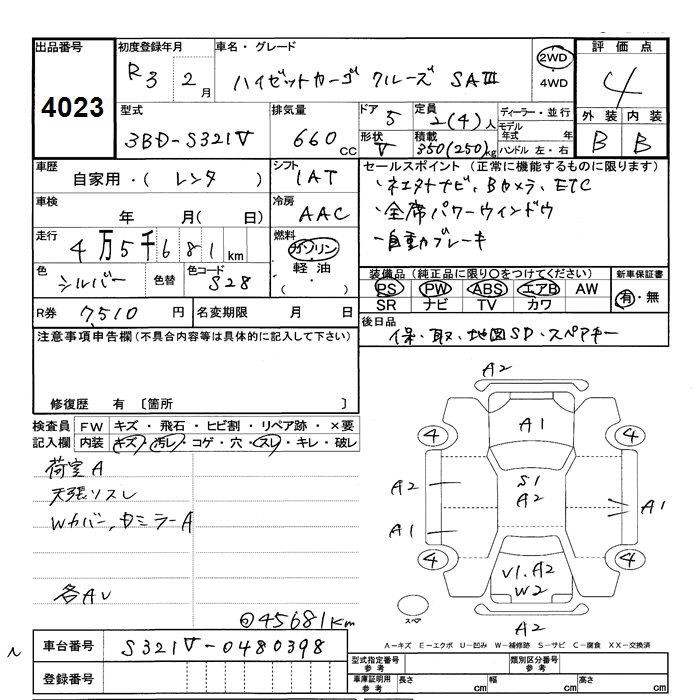 出品番号
4023
初度登録年月
R3 2 月
車名・グレード
ハイゼットカーゴ クルーズ SAⅢ
2WD
・
4WD
評価点
4
外装 内装
B B
型式
3BD-S321V
排気量
660 CC
ドア 5
形状 V
定員 2(4) 人
積載 350(250) kg
ディーラー・並行
モデル年式 年
ハンドル 左・右
車歴
自家用・( レンタ )
シフト
IAT
車検
年 月( 日)
冷房
AAC
走行
4万5千681 km
燃料
ガソリン
・
軽油
( )
色
シルバー
色替
色コード
S28
R券 7,510 円
名変期限 月 日
セールスポイント(正常に機能するものに限ります)
・ネエタトナビ、Bカメラ、ETC
・全席パワーウィンドウ
・自動ブレーキ
装備品(純正品に限り○をつけてください)
PS PW ABS エアB AW
SR ナビ TV カワ
新車保証書
有・無
後日品
保・取・地図SD・スペアキー
注意事項申告欄(不具合内容等は具体的に記入して下さい)
修復歴 有 〔箇所 〕
検査員記入欄
FW キズ・飛石・ヒビ割・リペア跡・×要
内装 キズ・汚レ・コゲ・穴・スレ・キレ・破レ
荷室A
天張リスレ
Wカバー、カミラーA
各AU
◎45681km
A2
A1
4 4
S1
A2
A2
A1
A1
4 4
V1.A2
W2
A2
スペア
A-キズ E-エクボ U-凹み W-補修跡 S-サビ C-腐食 XX-交換済
車台番号 S321V-0480398
登録番号
型式指定番号
参考
類別区分番号
参考
車庫証明用
参考
長さ cm
幅 cm
高さ cm